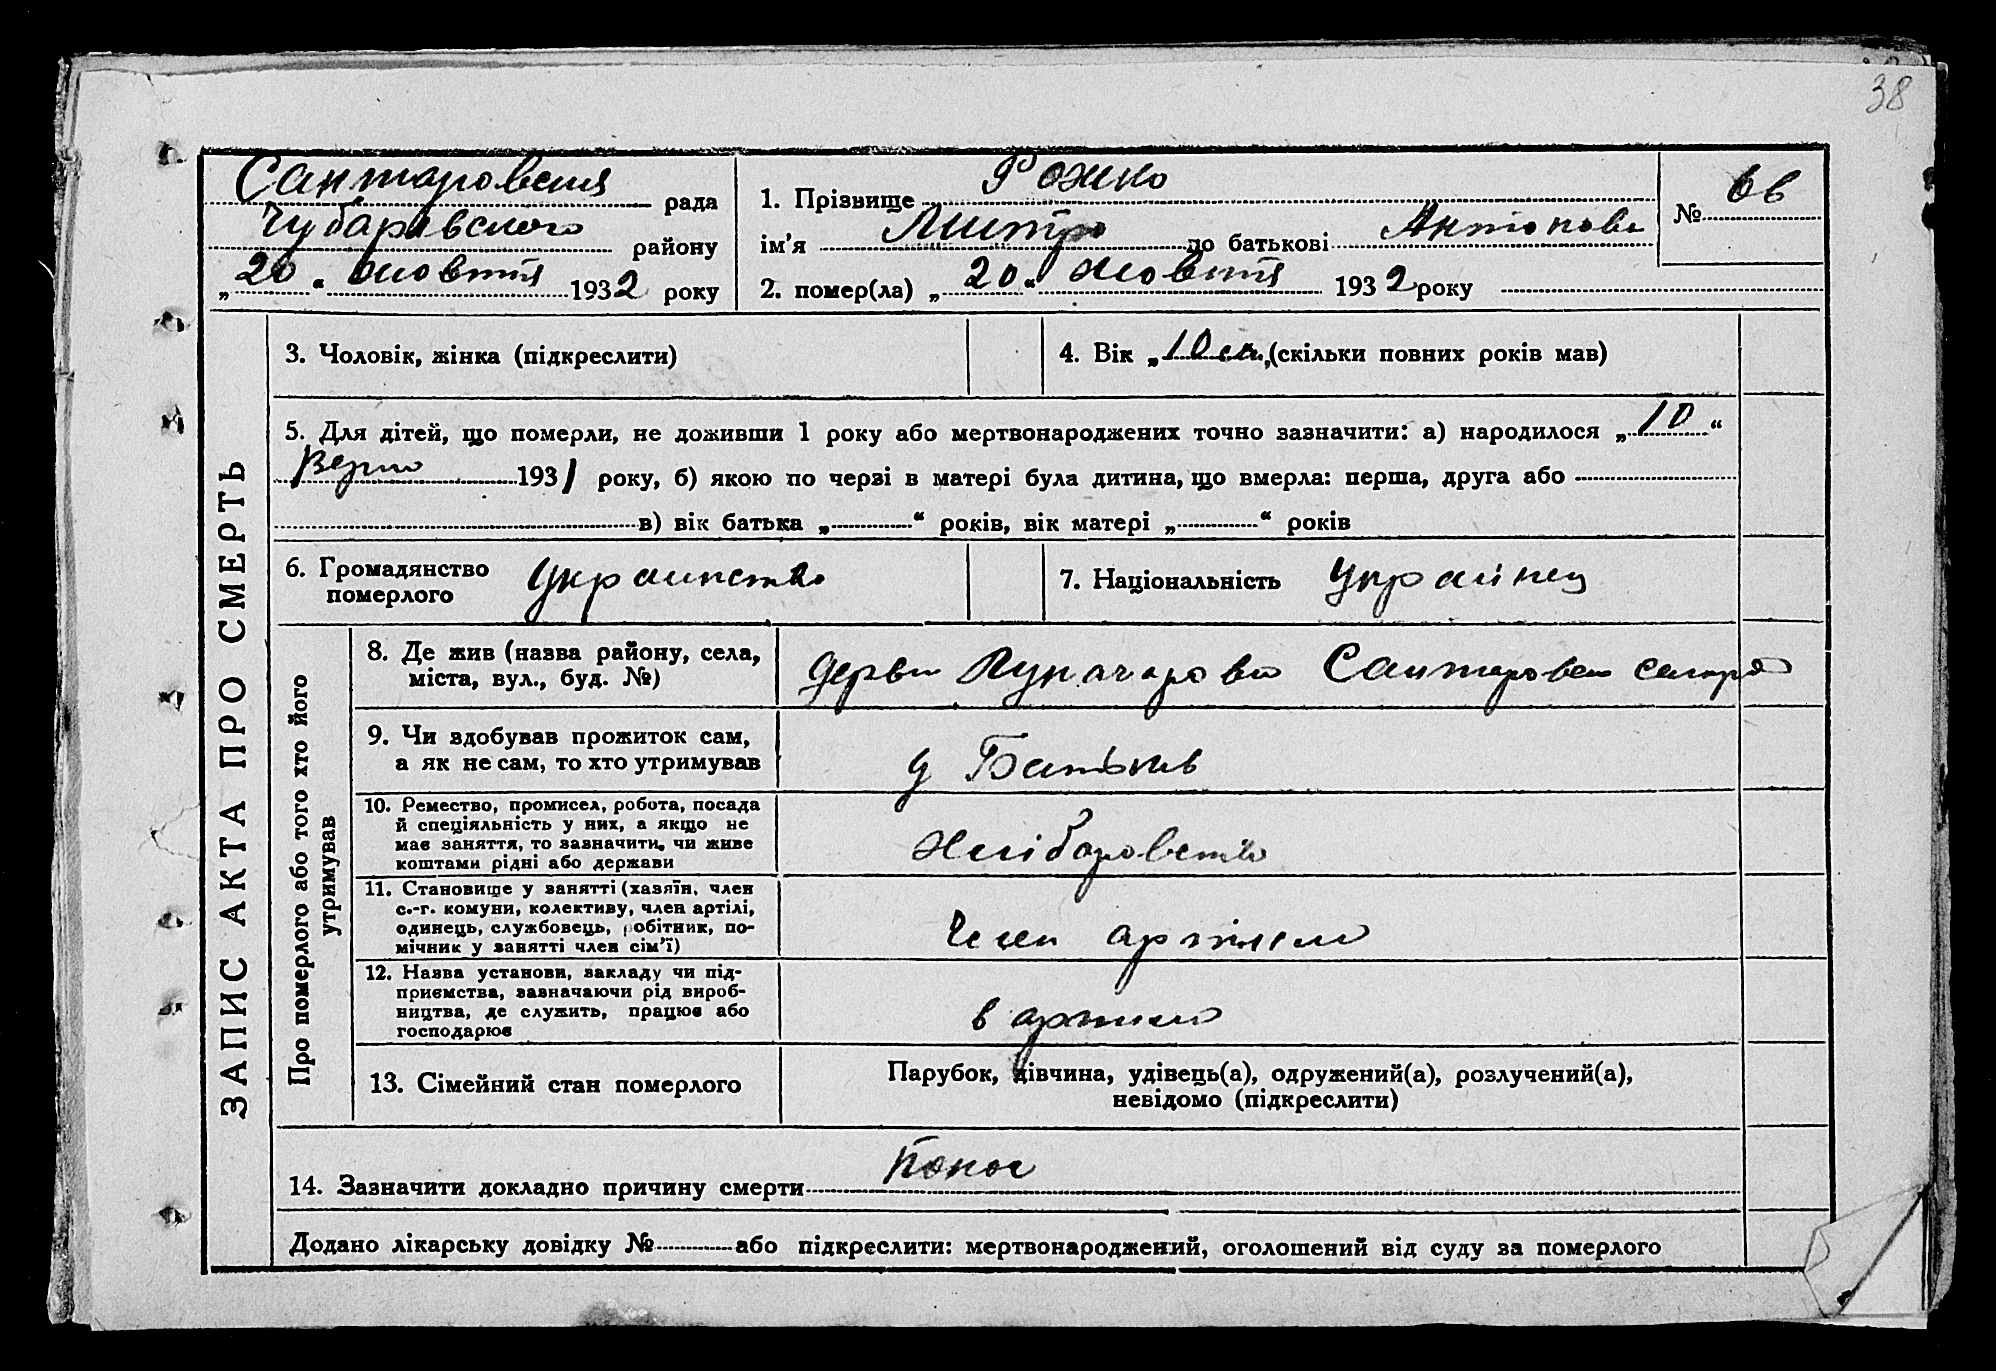 38
Сантаровська рада
Чубарівського району
„20“ жовтня 1932 року
1. Прізвище Рожко
ім’я Митро по батькові Антонові
№ 66
2. помер(ла) „20“ жовтня 1932 року
ЗАПИС АКТА ПРО СМЕРТЬ
3. Чоловік, жінка (підкреслити)
4. Вік „10 см.“ (скільки повних років мав)
5. Для дітей, що померли, не доживши 1 року або мертвонароджених точно зазначити: а) народилося „10“
1931 року, б) якою по черзі в матері була дитина, що вмерла: перша, друга або
в) вік батька „ “ років, вік матері „ “ років
6. Громадянство
померлого
Украинство
7. Національність Украінец
Про померлого або того хто його
утримував
8. Де жив (назва району, села,
міста, вул., буд. №)
Луначарово Сантаровск
9. Чи здобував прожиток сам,
а як не сам, то хто утримував
у Батьків
10. Ремество, промисел, робота, посада
й спеціяльність у них, а якщо не
має заняття, то зазначити, чи живе
коштами рідні або держави
Хліборовство
11. Становище у занятті (хазяїн, член
с.-г. комуни, колективу, член артілі,
одинець, службовець, робітник, по-
мічник у занятті член сім’ї)
Член артили
12. Назва установи, закладу чи під-
приємства, зазначаючи рід вироб-
ництва, де служить, працює або
господарює
в артили
13. Сімейний стан померлого
Парубок, дівчина, удівець(а), одружений(а), розлучений(а),
невідомо (підкреслити)
14. Зазначити докладно причину смерти Понос
Додано лікарську довідку № або підкреслити: мертвонароджений, оголошений від суду за померлого